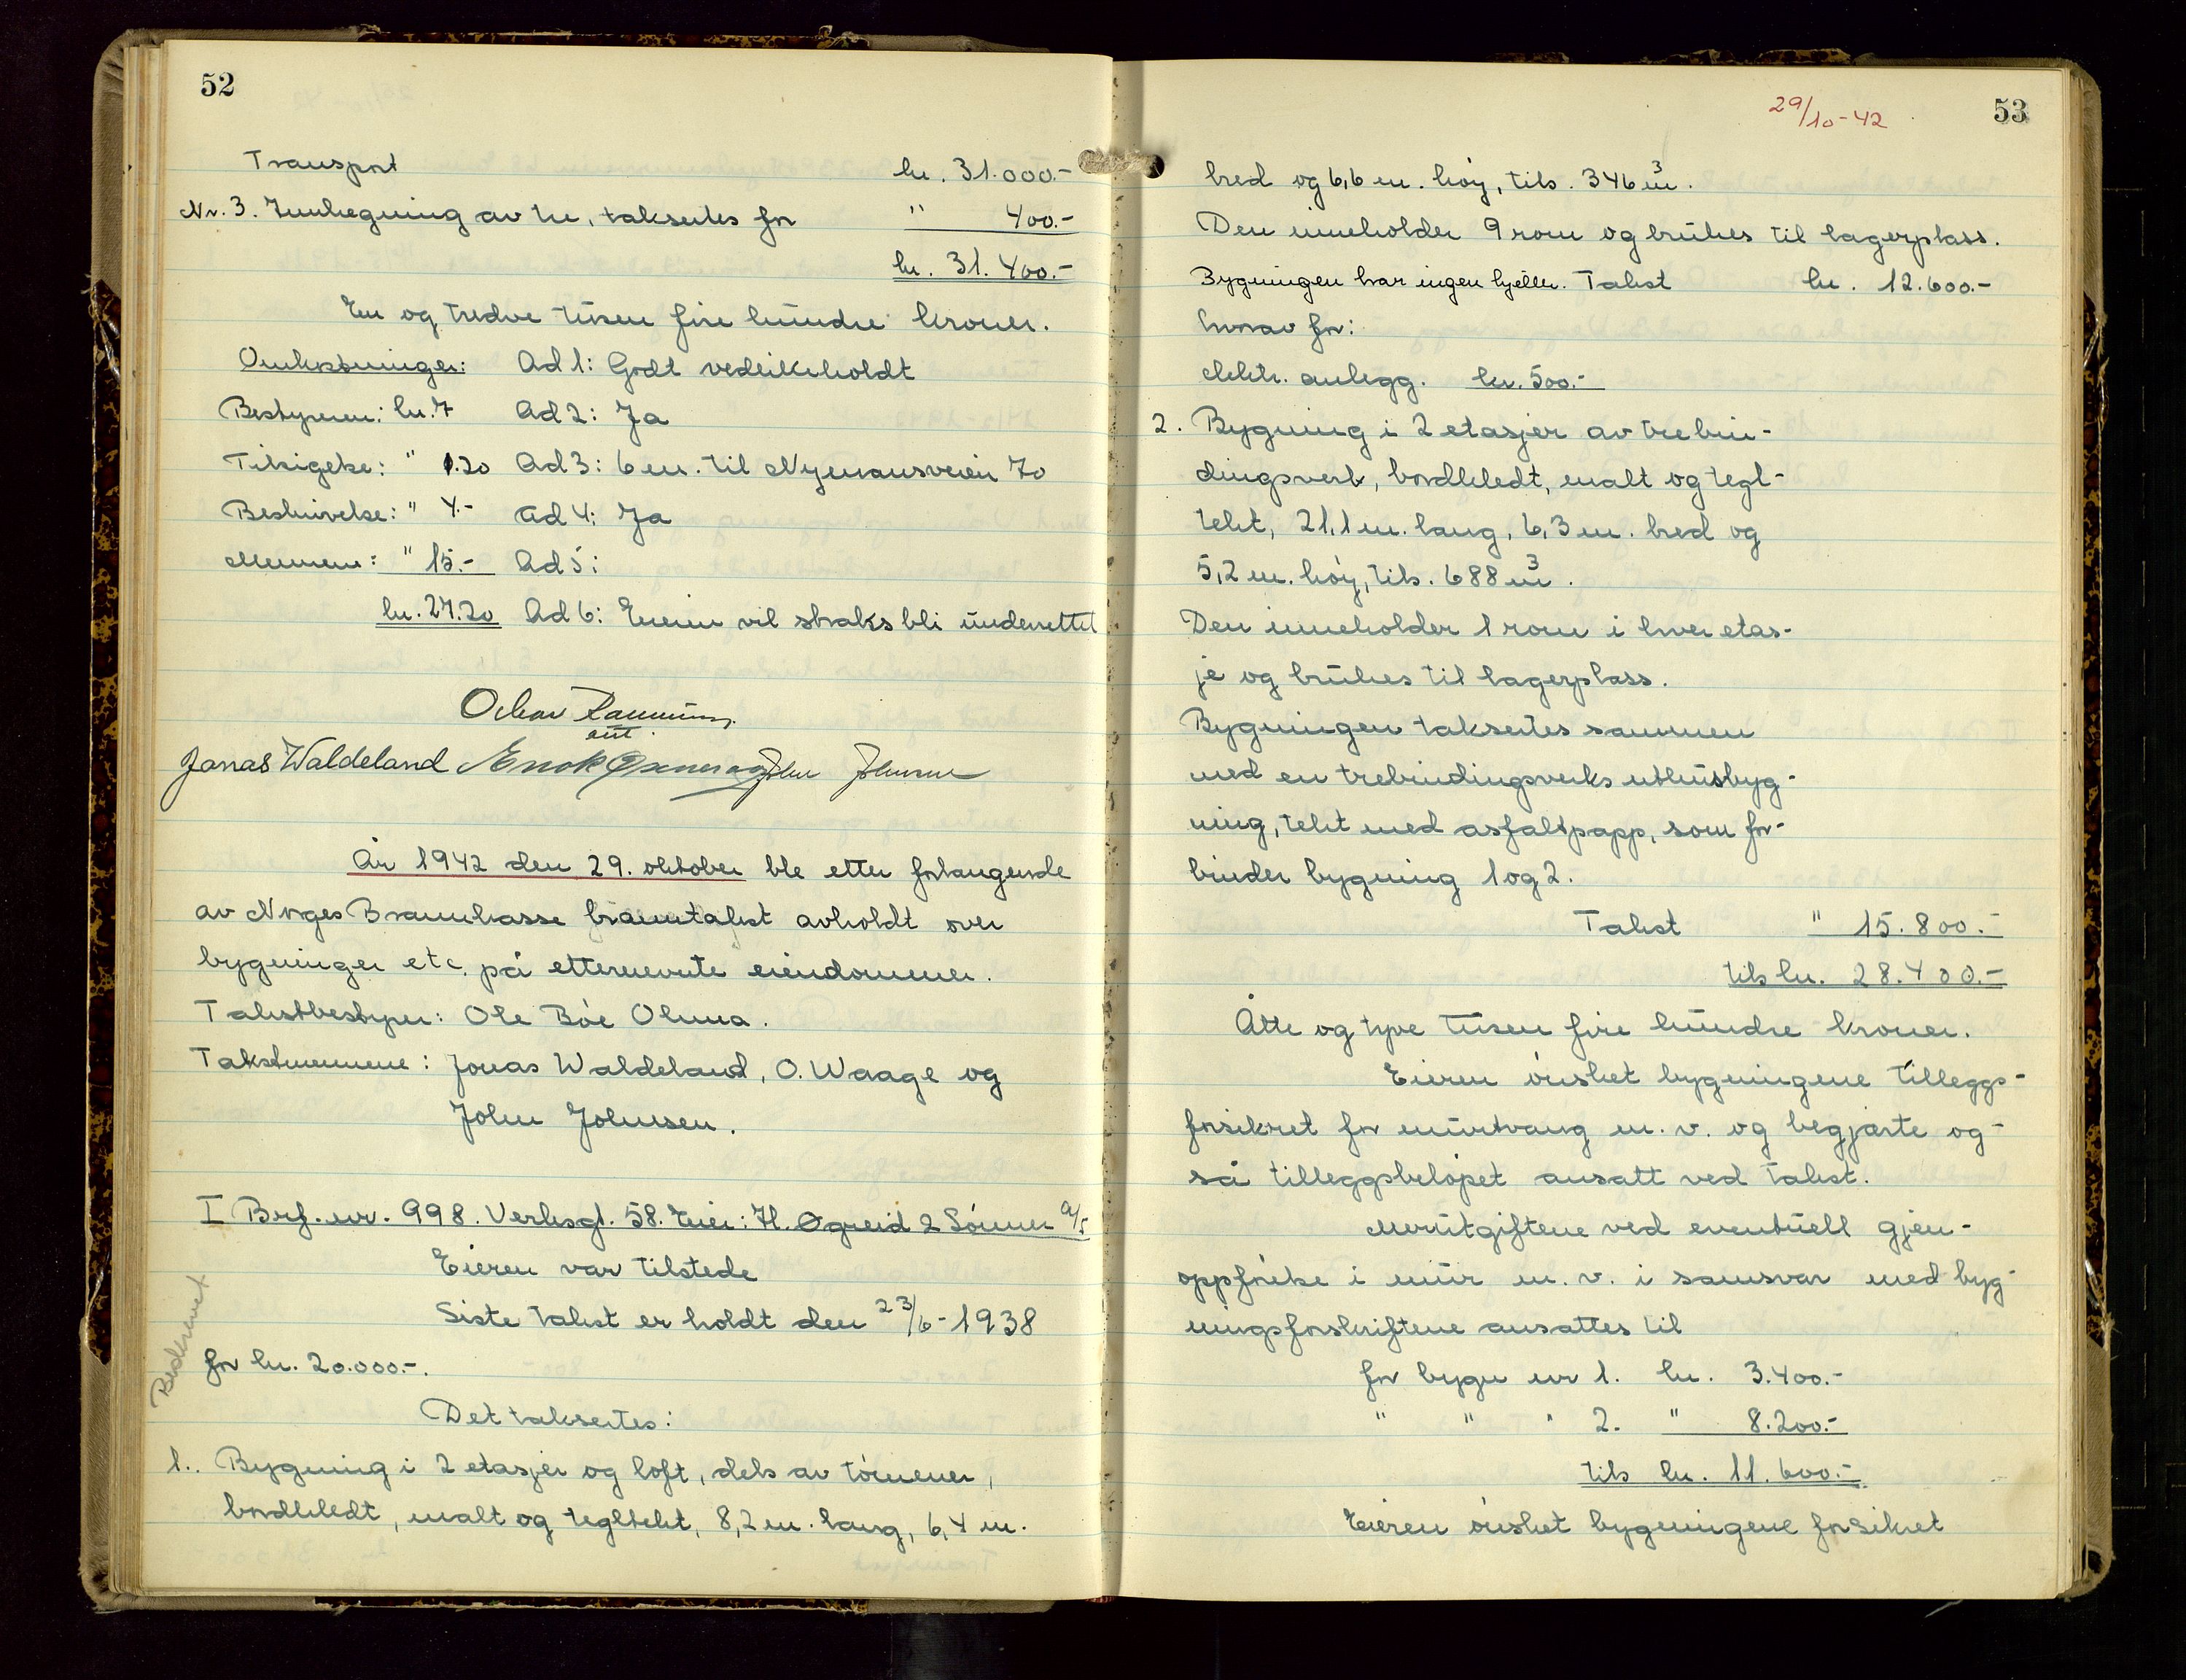 52
Transport kr. 31.000.-
Nr. 3. Innhegning av tre, takseres for " 400.-
kr. 31.400.-
En og tredve tusen fire hundre kroner.
Omkostninger: Ad 1: Godt vedlikeholdt
Bestyreren: kr. 7 Ad 2: Ja
Tilsigelse: " 1.20 Ad 3: 6 m. til Nymansveien 70
Beskrivelse: " 4.- Ad 4: Ja
Mennene: " 15.- Ad 5:
kr. 27.20 Ad 6: Eieren vil straks bli underrettet
Oskar
Jonas Waldeland Enok John Johnsen
År 1942 den 29. oktober ble etter forlangende
av Norges Brannkasse branntakst avholdt over
bygninger etc. på etternevnte eiendommer.
Takstbestyrer: Ole Bøe Olsen.
Takstmennene: Jonas Waldeland, O. Waage og
John Johnsen.
I Brf. nr. 998. Verksgt. 58. Eier: H. Øgreid & Sønner A/S
Eieren var tilstede
Siste takst er holdt den 23/6-1938
for kr. 20.000.-.
Beskrevet
Det takseres:
1. Bygning i 2 etasjer og loft, dels av tømmer,
bordkledt, malt og tegltekt, 8,2 m. lang, 6,4 m.
29/10-42
53
bred og 6,6 m. høy, tils. 346 m3.
Den inneholder 9 rom og brukes til lagerplass.
Bygningen har ingen kjeller. Takst kr. 12.600.-
hvorav for:
elektr. anlegg. kr. 500.-
2. Bygning i 2 etasjer av trebin-
dingsverk, bordkledt, malt og tegl-
tekt, 21,1 m. lang, 6,3 m. bred og
5,2 m. høy, tils. 688 m3.
Den inneholder 1 rom i hver etas-
je og brukes til lagerplass.
Bygningen takseres sammen
med en trebindingsverks uthusbyg-
ning, tekt med asfaltpapp, som for-
binder bygning 1 og 2.
Takst " 15.800.-
tils kr. 28.400.-
Åtte og tyve tusen fire hundre kroner.
Eieren ønsket bygningene tilleggs-
forsikret for murtvang m. v. og begjærte og-
så tilleggsbeløpet ansatt ved takst.
Merutgiftene ved eventuell gjen-
oppførelse i mur m. v. i samsvar med byg-
ningsforskriftene ansattes til
for bygn nr 1. kr. 3.400.-
" " " 2. " 8.200.-
tils kr. 11.600.-
Eieren ønsket bygningene forsikret